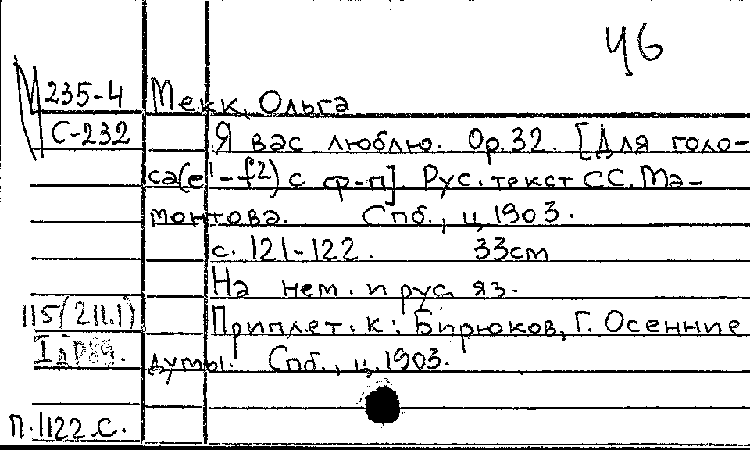 46
М 235-4
С-232
Мекк, Ольга
Я вас люблю. Op.32. [Для голо-
са(e'-f2) с ф-п]. Рус. текст С.С. Ма-
монтова. Спб., ц. 1903.
с. 121-122. 33см
На нем. и рус. яз.
Приплет. к: Бирюков, Г. Осенние
думы. Спб., ц. 1903.
115(211.1)
П.1122.С.